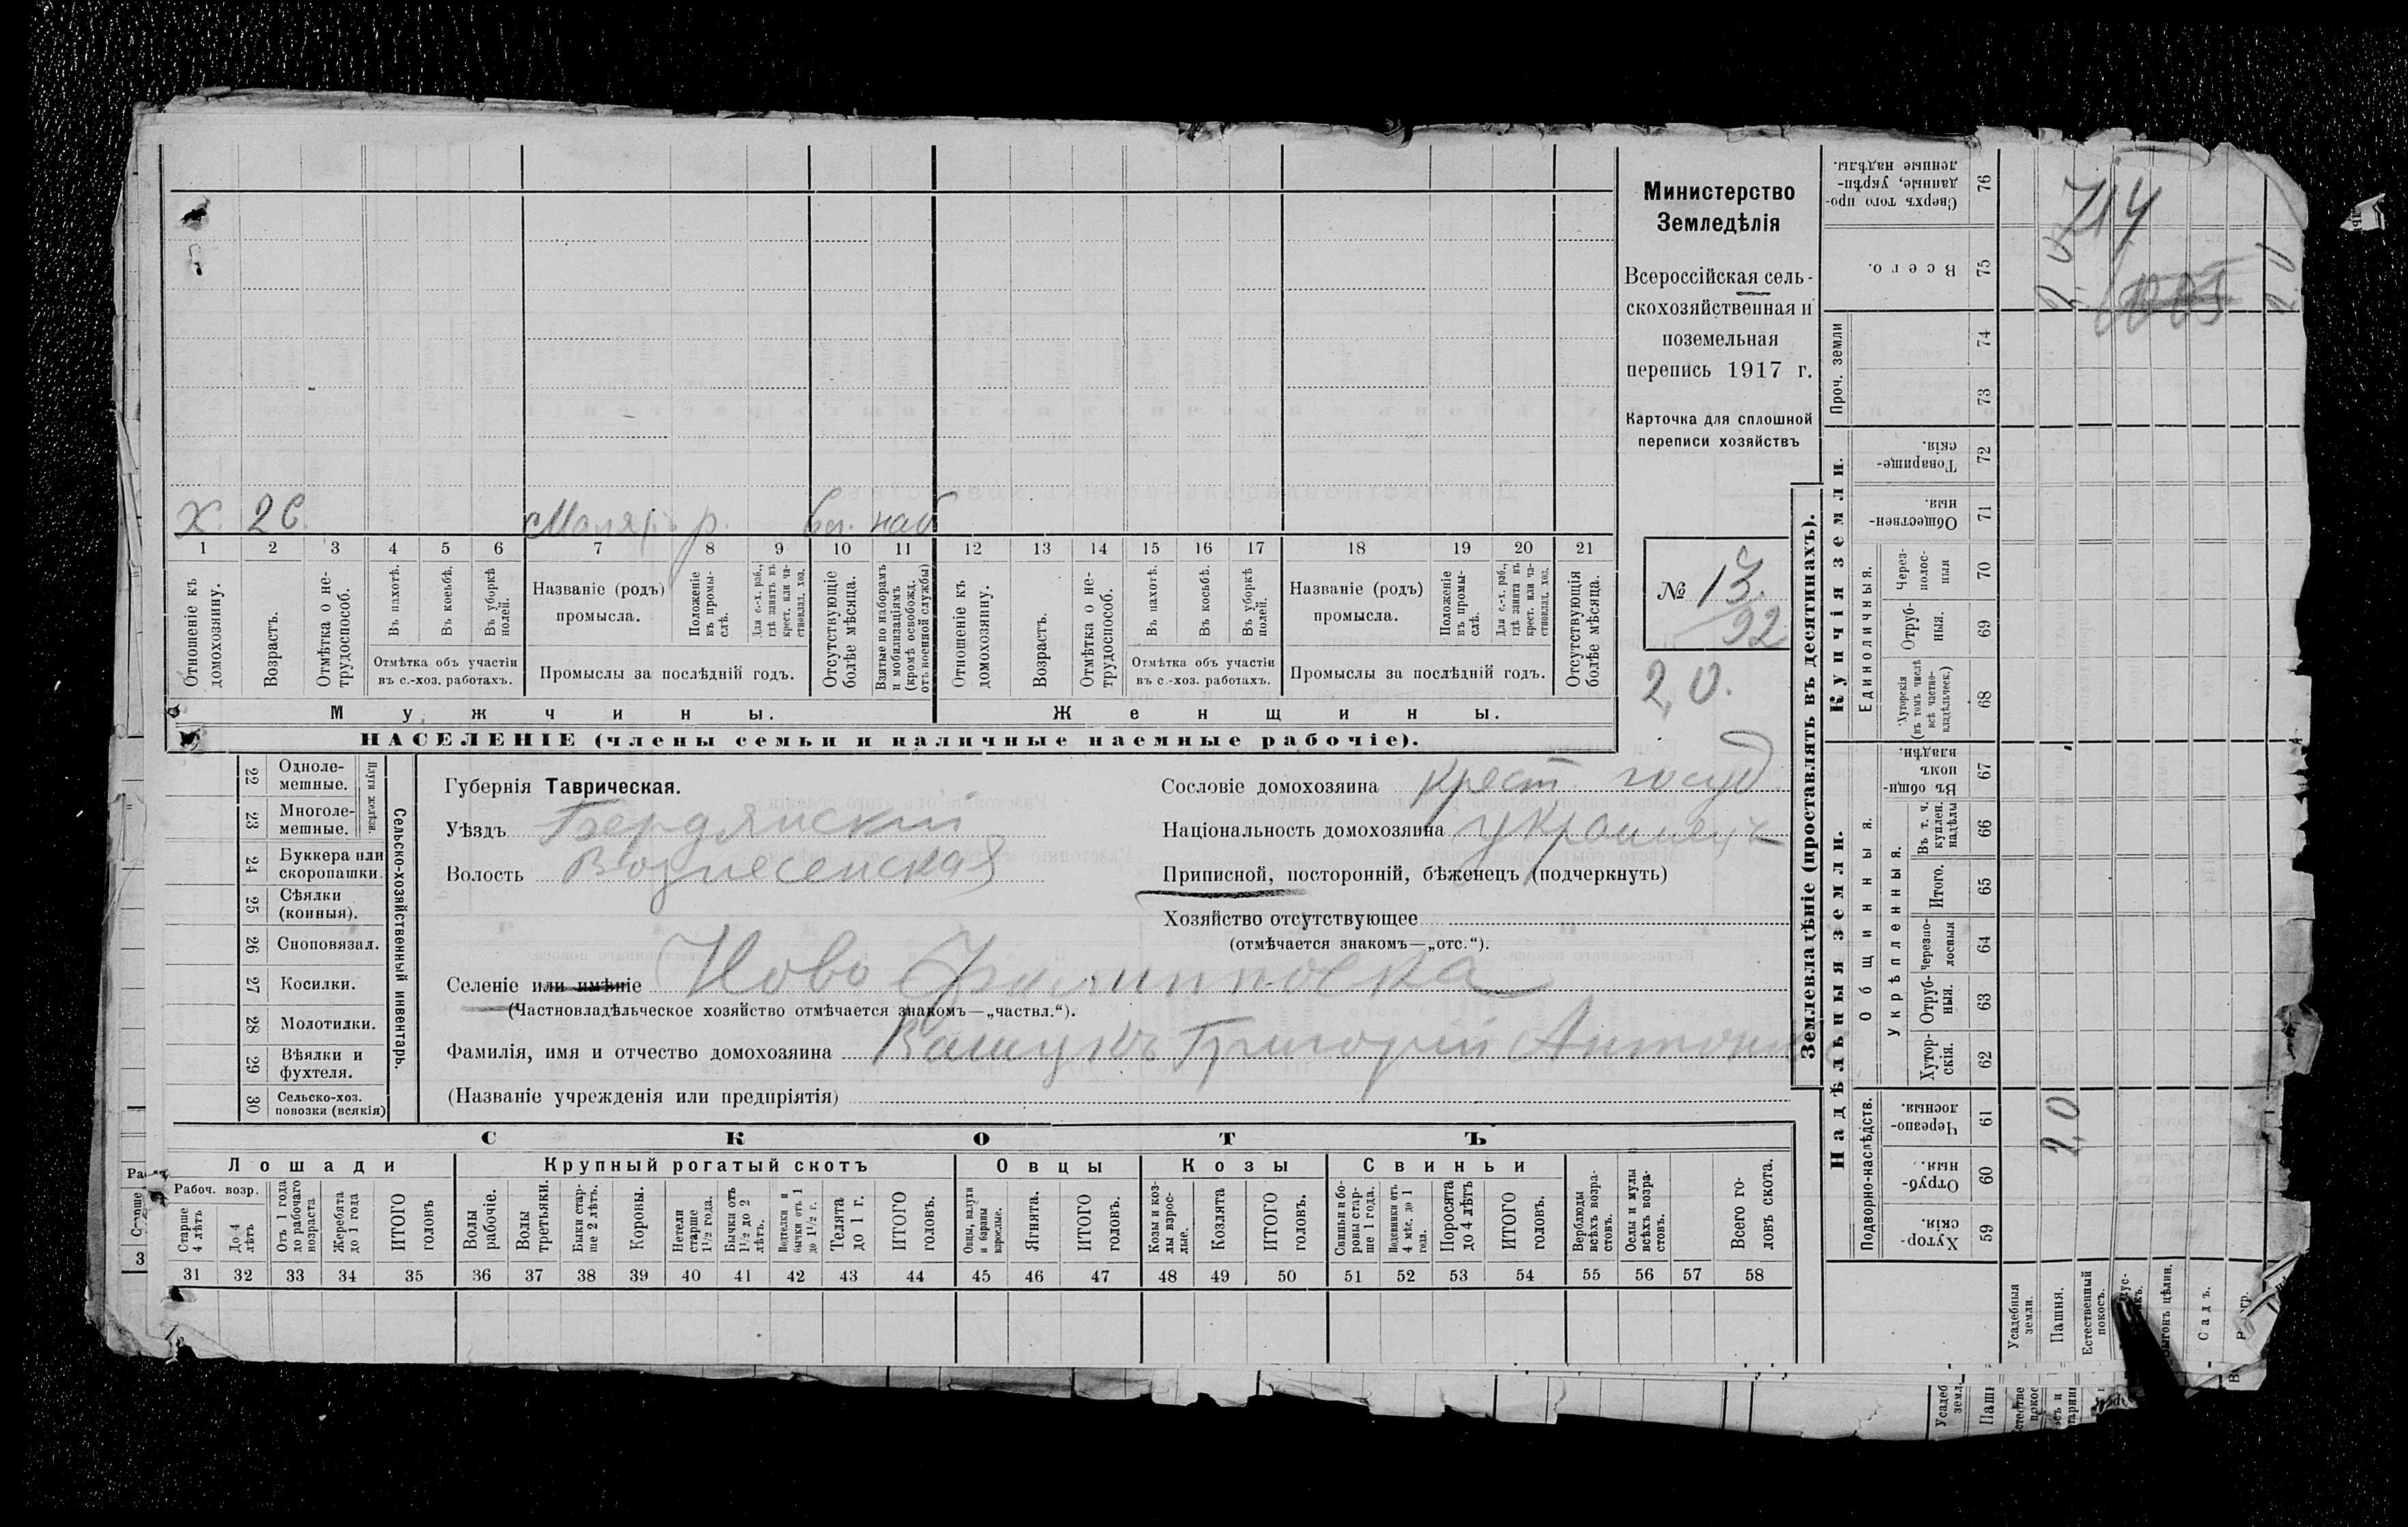 Министерство
Земледѣлія
Всероссійская сель-
скохозяйственная и
поземельная
перепись 1917 г.
Карточка для сплошной
переписи хозяйствъ
№ 13.
92
2,0.
Х. 26. Маляръ р. наб
1 2 3 4 5 6 7 8 9 10 11 12 13 14 15 16 17 18 19 20 21
Отношеніе къ домохозяину.
Возрастъ.
Отмѣтка о не-трудоспособ.
Въ пахотѣ.
Въ косьбѣ.
Въ уборкѣ полей.
Отмѣтка объ участіи
въ с.-хоз. работахъ.
Названіе (родъ)
промысла.
Положеніе въ промы-слѣ.
Для с.-х. раб., гдѣ занятъ въ крест. или ча-стновлад. хоз.
Промыслы за послѣдній годъ.
Отсутствующіе болѣе мѣсяца.
Взятые по наборамъ и мобилизаціямъ (кромѣ освобожд. отъ военной службы)
Отношеніе къ домохозяину.
Возрастъ.
Отмѣтка о не-трудоспособ.
Въ пахотѣ.
Въ косьбѣ.
Въ уборкѣ полей.
Отмѣтка объ участіи
въ с.-хоз. работахъ.
Названіе (родъ)
промысла.
Положеніе въ промы-слѣ.
Для с.-х. раб., гдѣ занята въ крест. или ча-стновлад. хоз.
Промыслы за послѣдній годъ.
Отсутствующія болѣе мѣсяца.
Мужчины. Женщины.
НАСЕЛЕНІЕ (члены семьи и наличные наемные рабочіе).
22 Одноле-мешные.
23 Многоле-мешные.
Плуги желѣзн.
24 Буккера или скоропашки.
25 Сѣялки (конныя).
26 Сноповязал.
27 Косилки.
28 Молотилки.
29 Вѣялки и фухтеля.
30 Сельско-хоз. повозки (всякія)
Сельско-хозяйственный инвентарь.
Губернія Таврическая.
Уѣздъ Бердянскій
Волость Вознесенская
Сословіе домохозяина крест. госуд.
Національность домохозяина украинецъ
Приписной, посторонній, бѣженецъ (подчеркнуть)
Хозяйство отсутствующее
(отмѣчается знакомъ—„отс.“).
Селеніе или имѣніе Ново Филипповка
(Частновладѣльческое хозяйство отмѣчается знакомъ—„частвл.“).
Фамилія, имя и отчество домохозяина Ващукъ Григорій Антонов
(Названіе учрежденія или предпріятія)
СКОТЪ
Лошади Крупный рогатый скотъ Овцы Козы Свиньи
Рабоч. возр.
Старше 4 лѣтъ
До 4 лѣтъ
Отъ 1 года до рабочаго возраста
Жеребята до 1 года
ИТОГО головъ
Волы рабочіе.
Волы третьяки.
Быки стар-ше 2 лѣтъ.
Коровы.
Нетели старше 1½ года.
Бычки отъ 1½ до 2 лѣтъ.
Подтелки и бычки отъ 1 до 1½ г.
Телята до 1 г.
ИТОГО головъ.
Овцы, валухи и бараны взрослые.
Ягнята.
ИТОГО головъ.
Козы и коз-лы взрос-лые.
Козлята
ИТОГО головъ.
Свиньи и бо-ровы стар-ше 1 года.
Подсвинки отъ 4 мѣс. до 1 года.
Поросята до 4 лѣтъ
ИТОГО головъ.
Верблюды всѣхъ возра-стовъ.
Ослы и мулы всѣхъ возра-стовъ.
Всего го-ловъ скота.
31 32 33 34 35 36 37 38 39 40 41 42 43 44 45 46 47 48 49 50 51 52 53 54 55 56 57 58
Землевладѣніе (проставлять въ десятинахъ).
Надѣльныя земли. Купчія земли. Проч. земли
Подворно-наслѣдств.
Общинныя.
Укрѣпленныя.
Единоличныя.
Хутор-скія. 59
Отруб-ныя. 60
Черезпо-лосныя. 61
Хутор-скія. 62
Отруб-ныя. 63
Черезпо-лосныя 64
Итого. 65
Въ т. ч. куплен. надѣлы 66
Въ общи-номъ владѣн. 67
Хуторскія (въ томъ числѣ всѣ частно-владѣльческ.) 68
Отруб-ныя. 69
Через-полос-ныя 70
Обществен-ныя. 71
Товарище-скія. 72
73
74
Всего. 75
Сверхъ того про-данные, укрѣп-ленные надѣлы. 76
Усадебныя земли.
Пашня. 2,0
Естественный покосъ.
Садъ.
714